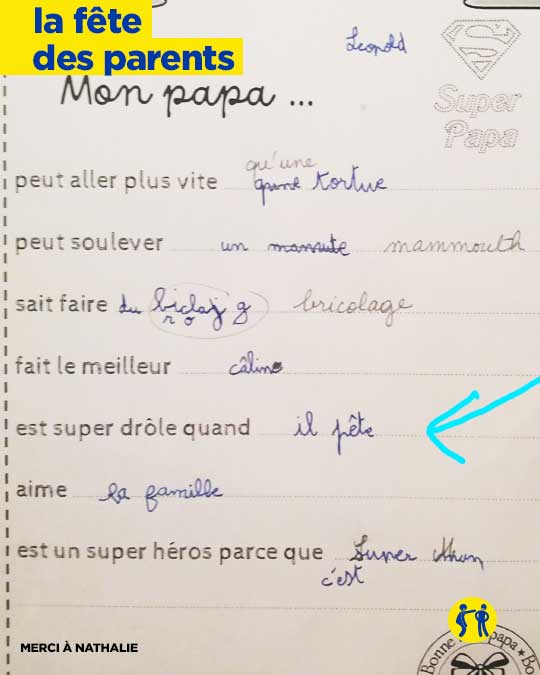 la fête
des parents
Leopold
Super
Papa
Mon papa ...
qu'une
peut aller plus vite tortue
peut soulever un mammouth
sait faire du biclaj g bricolage
r o
fait le meilleur câlin
est super drôle quand il pête
aime sa famille
est un super héros parce que Super
c'est
MERCI À NATHALIE
Bonne papa ★ Bo